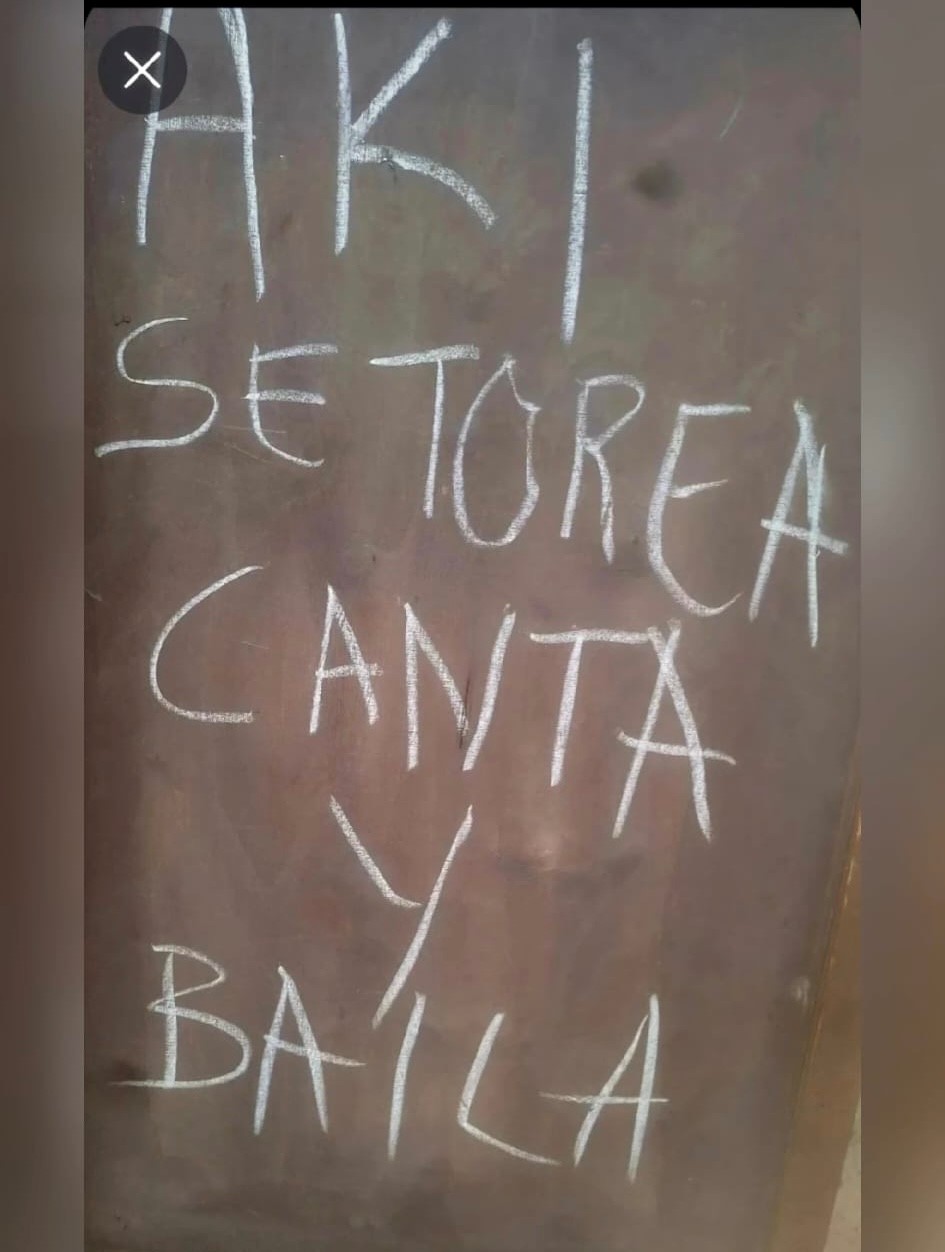 AKI
SE TOREA
CANTA
Y
BAILA